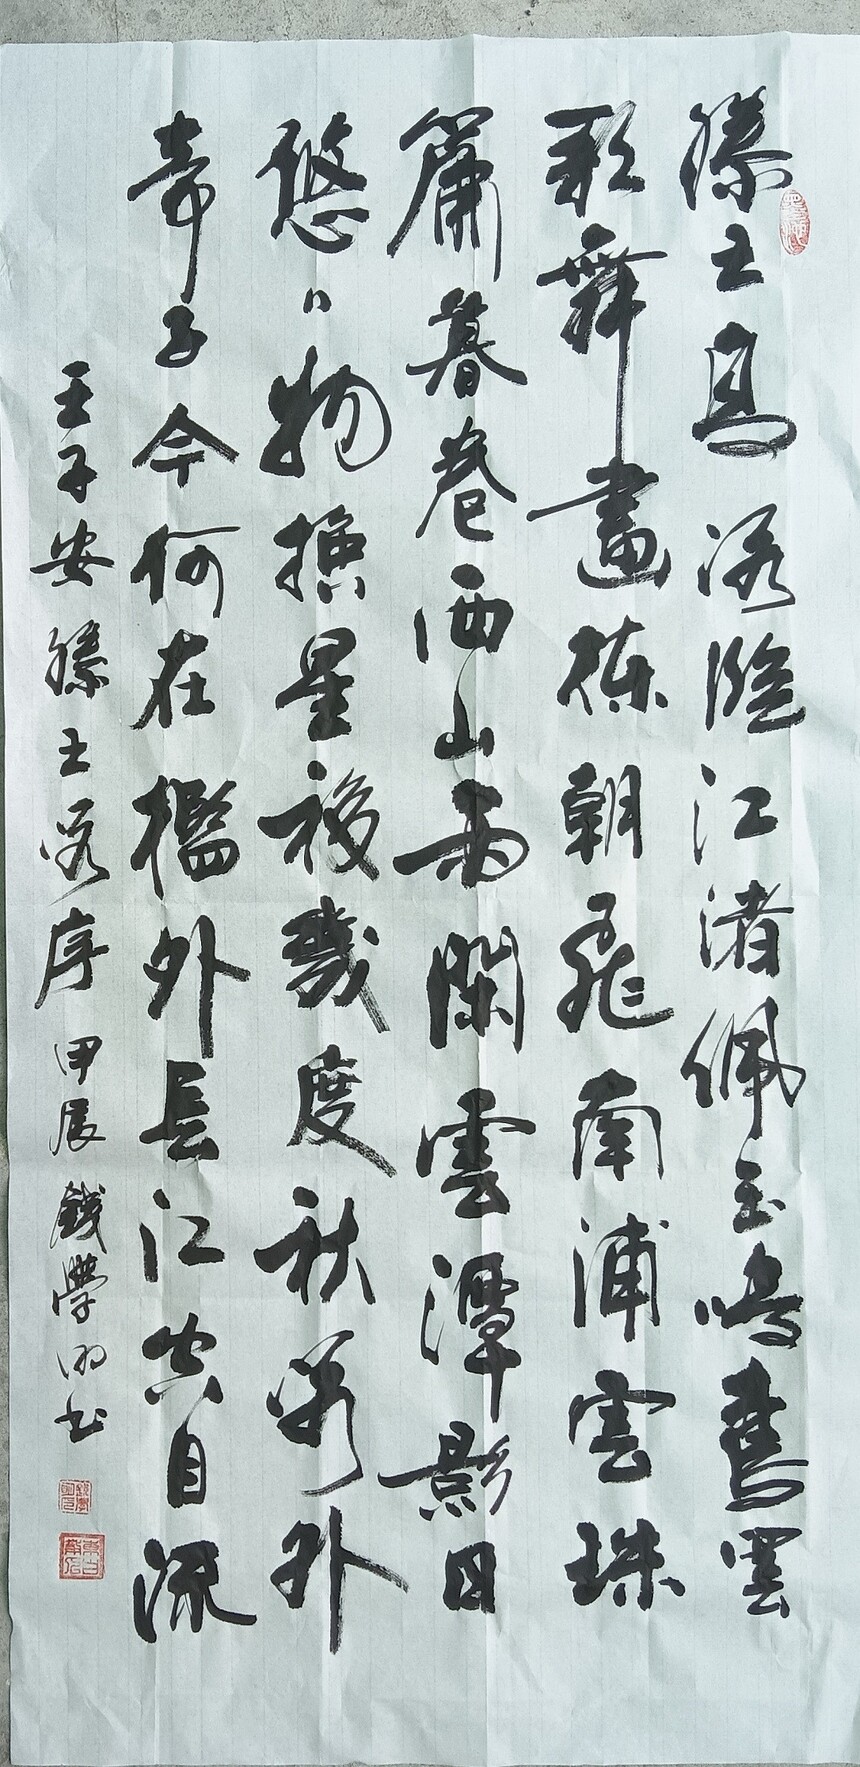 滕王高閣臨江渚佩玉鳴鸞罢
歌舞畫棟朝飛南浦雲珠
簾暮卷西山雨閑雲潭影日
悠々物換星移幾度秋閣外
帝子今何在檻外長江空自流
王子安滕王閣序 甲辰 錢學明书